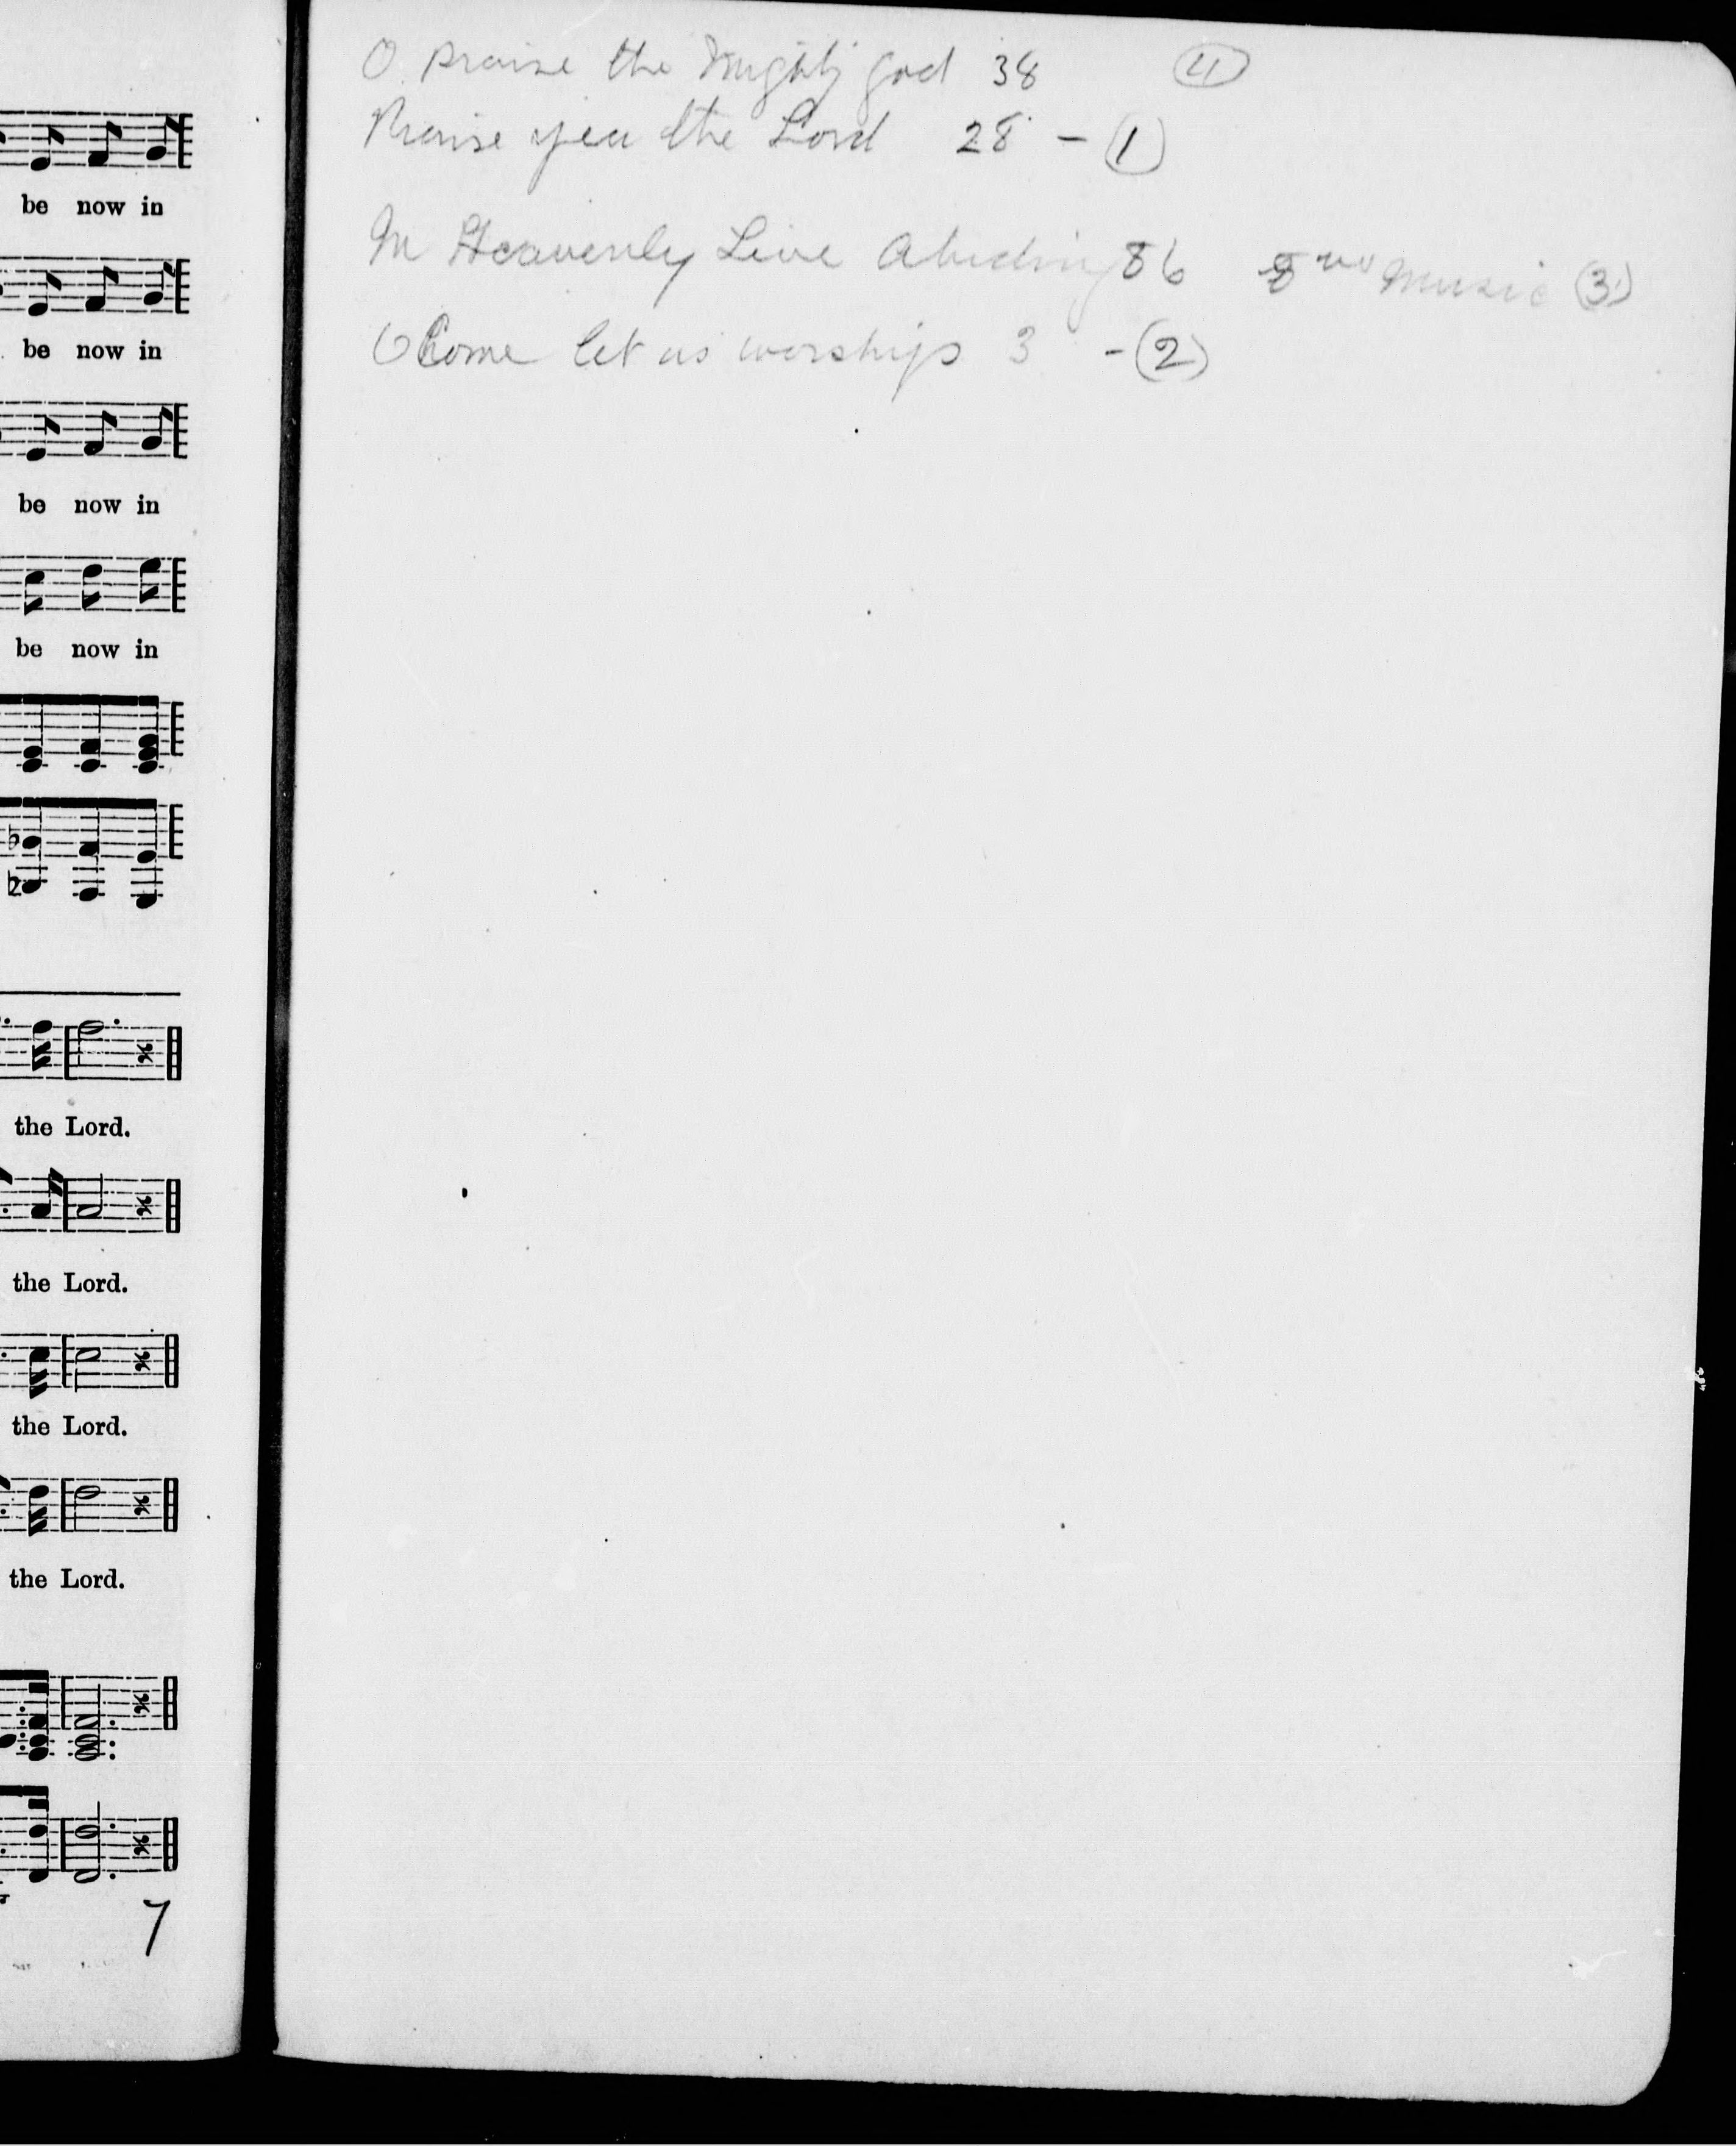 be now in
be now in
be now in
be now in
the Lord.
the Lord.
the Lord.
the Lord.
7
O praise the Mighty God 38 (4)
Praise yea the Lord 28 - (1)
In Heavenly Live Abiding 86 8vo Music (3)
O Come let us worships 3 - (2)